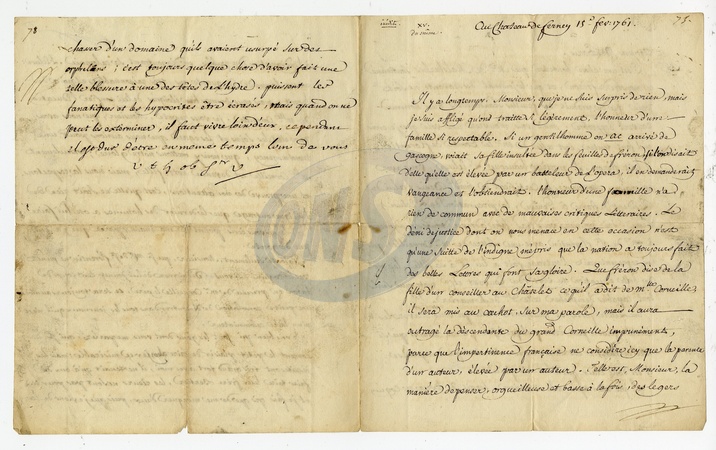 78
chasser d'un domaine qu'ils avaient usurpé sur des
orphelins ; c'est toujours quelque chose d'avoir fait une
telle blessure à une des têtes de l'hydre. puissent les
fanatiques et les hypocrites être écrasés, mais quand on ne
peut les exterminer, il faut vivre loin d'eux, cependant
il est dur d'être en même temps loin de vous
v t h ob Sr V
inédite
XV.
Au Chateau de ferney 15e fév. 1761.
75.
Il y a longtemps, Monsieur, que je ne suis surpris de rien, mais
je suis affligé qu'on traitte si légèrement l'honneur d'une
famille si respectable. Si un gentilhomme arrivé de
gascogne, voiait sa fille insultée dans les feuilles de fréron, si l'on disait
d'elle qu'elle est élevée par un basteleur de l'opera, il en demanderait
vangeance et l'obtiendrait. l'honneur d'une famille n'a
rien de commun avec de mauvaises critiques Litteraires. Le
déni de justice dont on nous menace en cette occasion n'est
qu'une suitte de l'indigne mépris que la nation a toujours fait
des belles Lettres qui font sa gloire. Que fréron dise de la
fille d'un conseiller au Châtelet ce qu'il a dit de Mlle Corneille,
il sera mis au cachot, sur ma parole, mais il aura
outragé la descendante du grand Corneille impunément,
parce que l'impertinence française ne considère icy que la parente
d'un auteur, élevée par un auteur. Telle est, Monsieur, la
manière de penser, orgueilleuse et basse à la fois, des legers
CMS